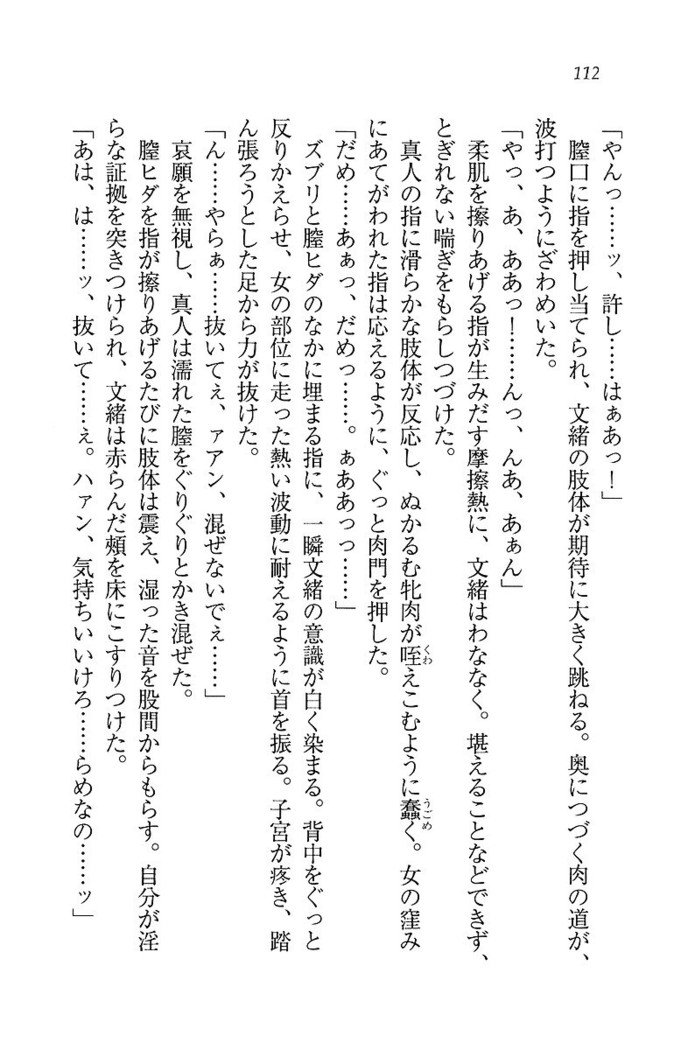 112
「やんっ……ッ、許し……はぁあっ！」
膣口に指を押し当てられ、文緒の肢体が期待に大きく跳ねる。奥につづく肉の道が、
波打つようにざわめいた。
「やっ、あ、ああっ！……んっ、んあ、あぁん」
柔肌を擦りあげる指が生みだす摩擦熱に、文緒はわななく。堪えることなどできず、
とぎれない喘ぎをもらしつづけた。
真人の指に滑らかな肢体が反応し、ぬかるむ牝肉が咥えこむように蠢く。女の窪み
にあてがわれた指は応えるように、ぐっと肉門を押した。
「だめ……あぁっ、だめっ……。ぁああっっ……」
ズブリと膣ヒダのなかに埋まる指に、一瞬文緒の意識が白く染まる。背中をぐっと
反りかえらせ、女の部位に走った熱い波動に耐えるように首を振る。子宮が疼き、踏
ん張ろうとした足から力が抜けた。
「ん……やらぁ……抜いてぇ、ァアン、混ぜないでぇ……」
哀願を無視し、真人は濡れた膣をぐりぐりとかき混ぜた。
膣ヒダを指が擦りあげるたびに肢体は震え、湿った音を股間からもらす。自分が淫
らな証拠を突きつけられ、文緒は赤らんだ頰を床にこすりつけた。
「あは、は……ッ、抜いて……ぇ。ハァン、気持ちいいけろ……らめなの……ッ」